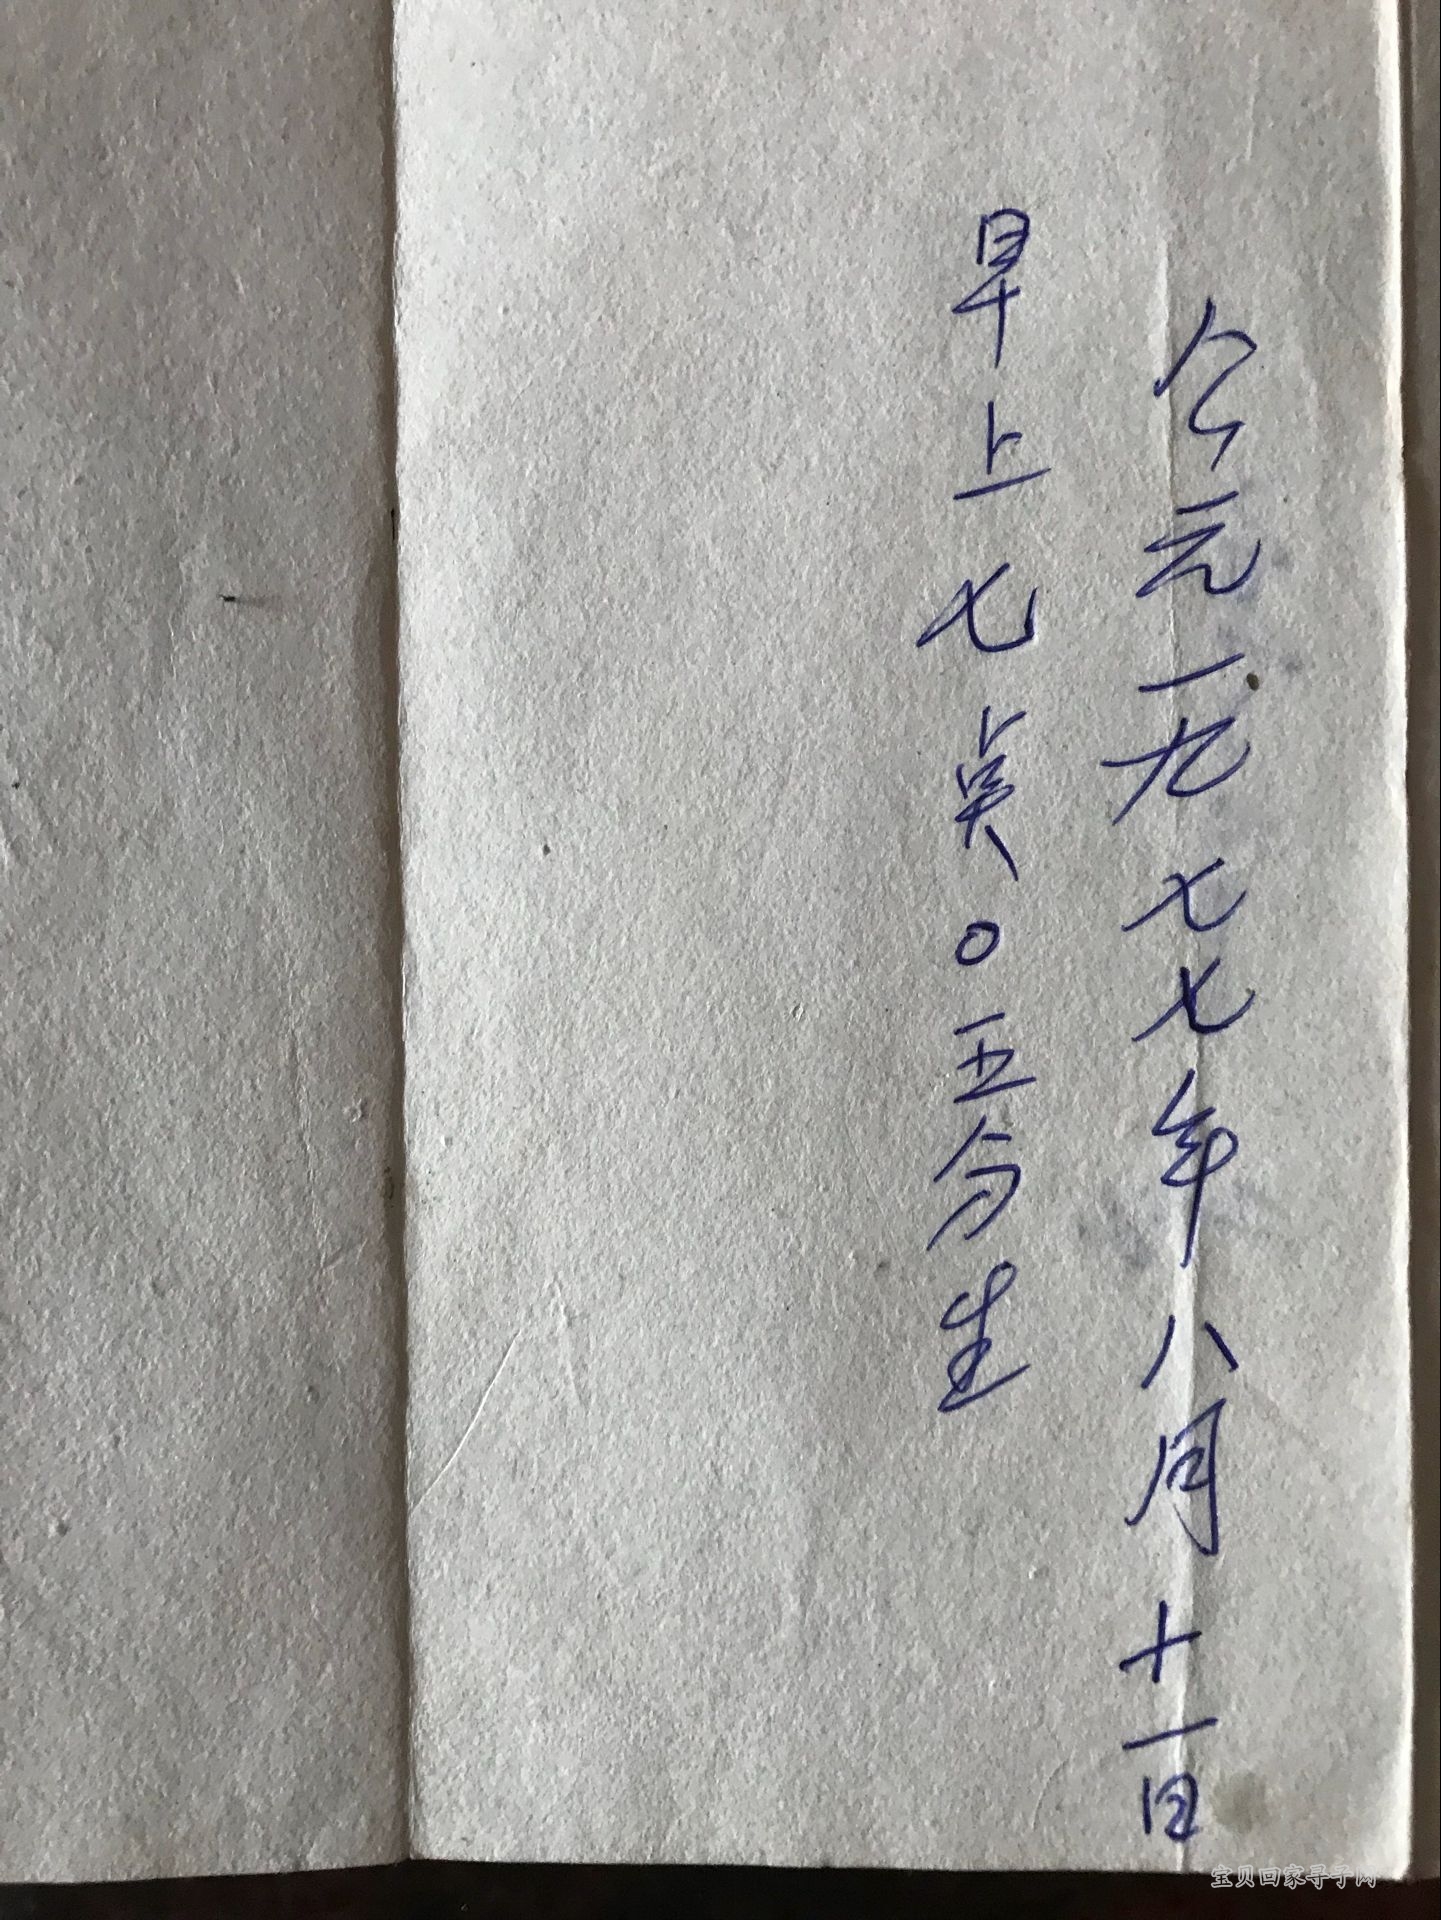 公元一九七七年八月十一日
早上七点0五分生
宝贝回家寻子网